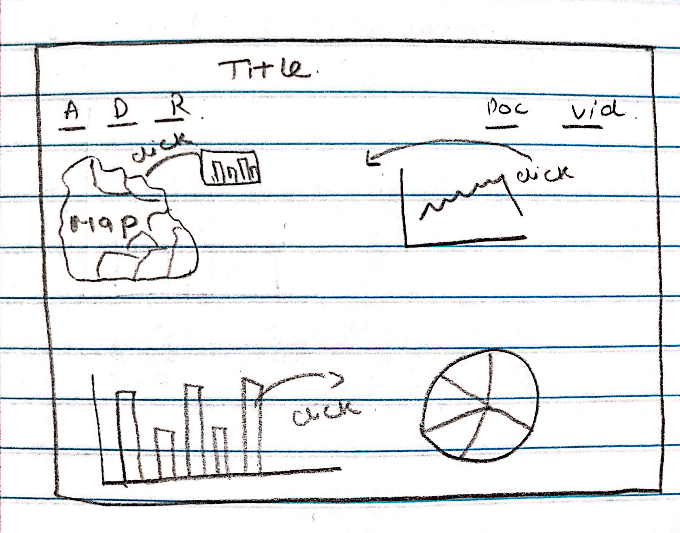 Title.
A D R. Doc Vid.
click
click
Map
click